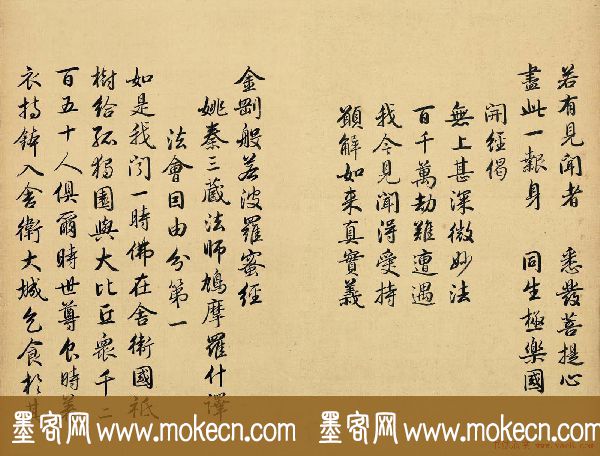 若有見聞者　悉發菩提心
盡此一報身　同生極樂國
開經偈
無上甚深微妙法
百千萬劫難遭遇
我今見聞得受持
願解如來真實義
金剛般若波羅蜜經
姚秦三藏法師鳩摩羅什譯
法會因由分第一
如是我聞一時佛在舍衛國祇
樹給孤獨園與大比丘衆千二
百五十人俱爾時世尊食時著
衣持鉢入舍衛大城乞食於其
墨客网 www.mokecn.com 墨客网 www.mokecn.com